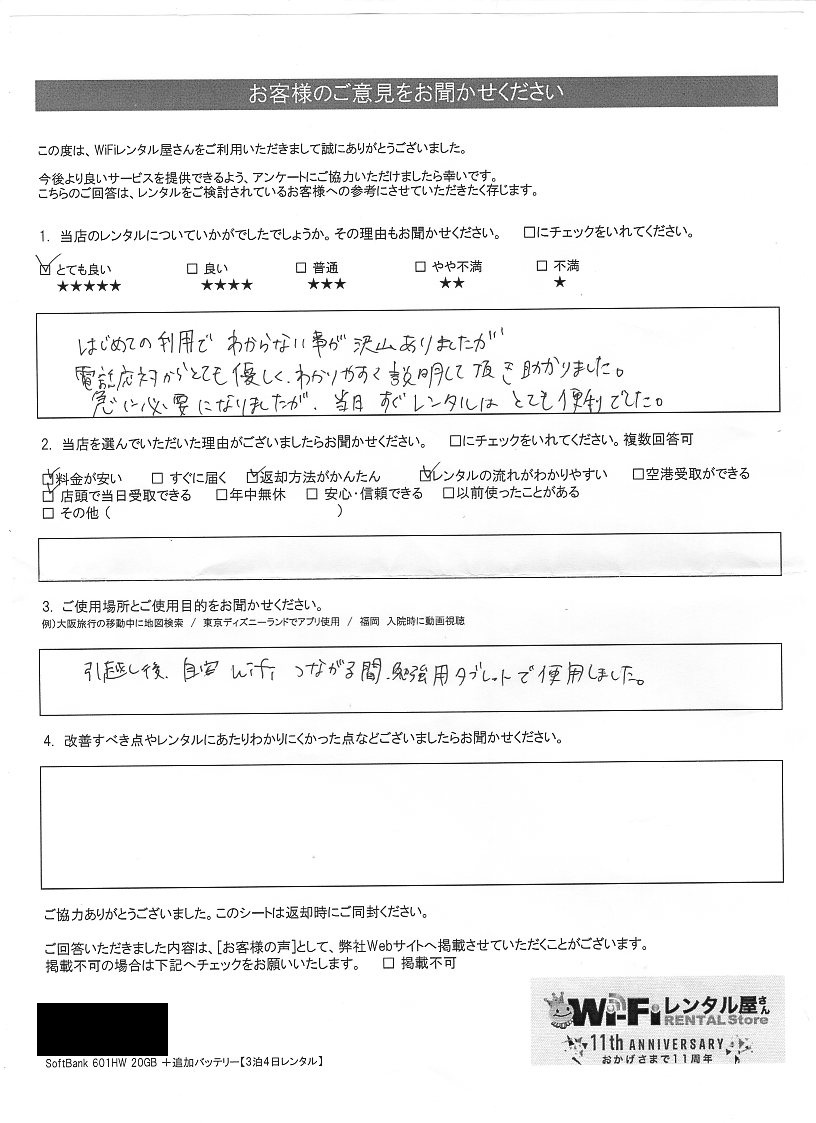 お客様のご意見をお聞かせください
この度は、WiFiレンタル屋さんをご利用いただきまして誠にありがとうございました。
今後より良いサービスを提供できるよう、アンケートにご協力いただけましたら幸いです。
こちらのご回答は、レンタルをご検討されているお客様への参考にさせていただきたく存じます。
1. 当店のレンタルについていかがでしたでしょうか。その理由もお聞かせください。 □にチェックをいれてください。
☑ とても良い □ 良い □ 普通 □ やや不満 □ 不満
★★★★★ ★★★★ ★★★ ★★ ★
はじめての利用で わからない事が 沢山ありましたが
電話応対からとても優しく、わかりやすく説明して頂き助かりました。
急に必要になりましたが、当日すぐレンタルは とても便利でした。
2. 当店を選んでいただいた理由がございましたらお聞かせください。 □にチェックをいれてください。複数回答可
☑料金が安い □ すぐに届く ☑返却方法がかんたん ☑レンタルの流れがわかりやすい □空港受取ができる
☑ 店頭で当日受取できる □年中無休 □ 安心・信頼できる □以前使ったことがある
□ その他 ( )
3. ご使用場所とご使用目的をお聞かせください。
例)大阪旅行の移動中に地図検索 / 東京ディズニーランドでアプリ使用 / 福岡 入院時に動画視聴
引越し後、自宅 wifi つながる間、勉強用タブレットで使用しました。
4. 改善すべき点やレンタルにあたりわかりにくかった点などございましたらお聞かせください。
ご協力ありがとうございました。このシートは返却時にご同封ください。
ご回答いただきました内容は、[お客様の声]として、弊社Webサイトへ掲載させていただくことがございます。
掲載不可の場合は下記へチェックをお願いいたします。 □ 掲載不可
Wi-Fiレンタル屋さん
RENTAL Store
11th ANNIVERSARY
おかげさまで11周年
SoftBank 601HW 20GB +追加バッテリー【3泊4日レンタル】